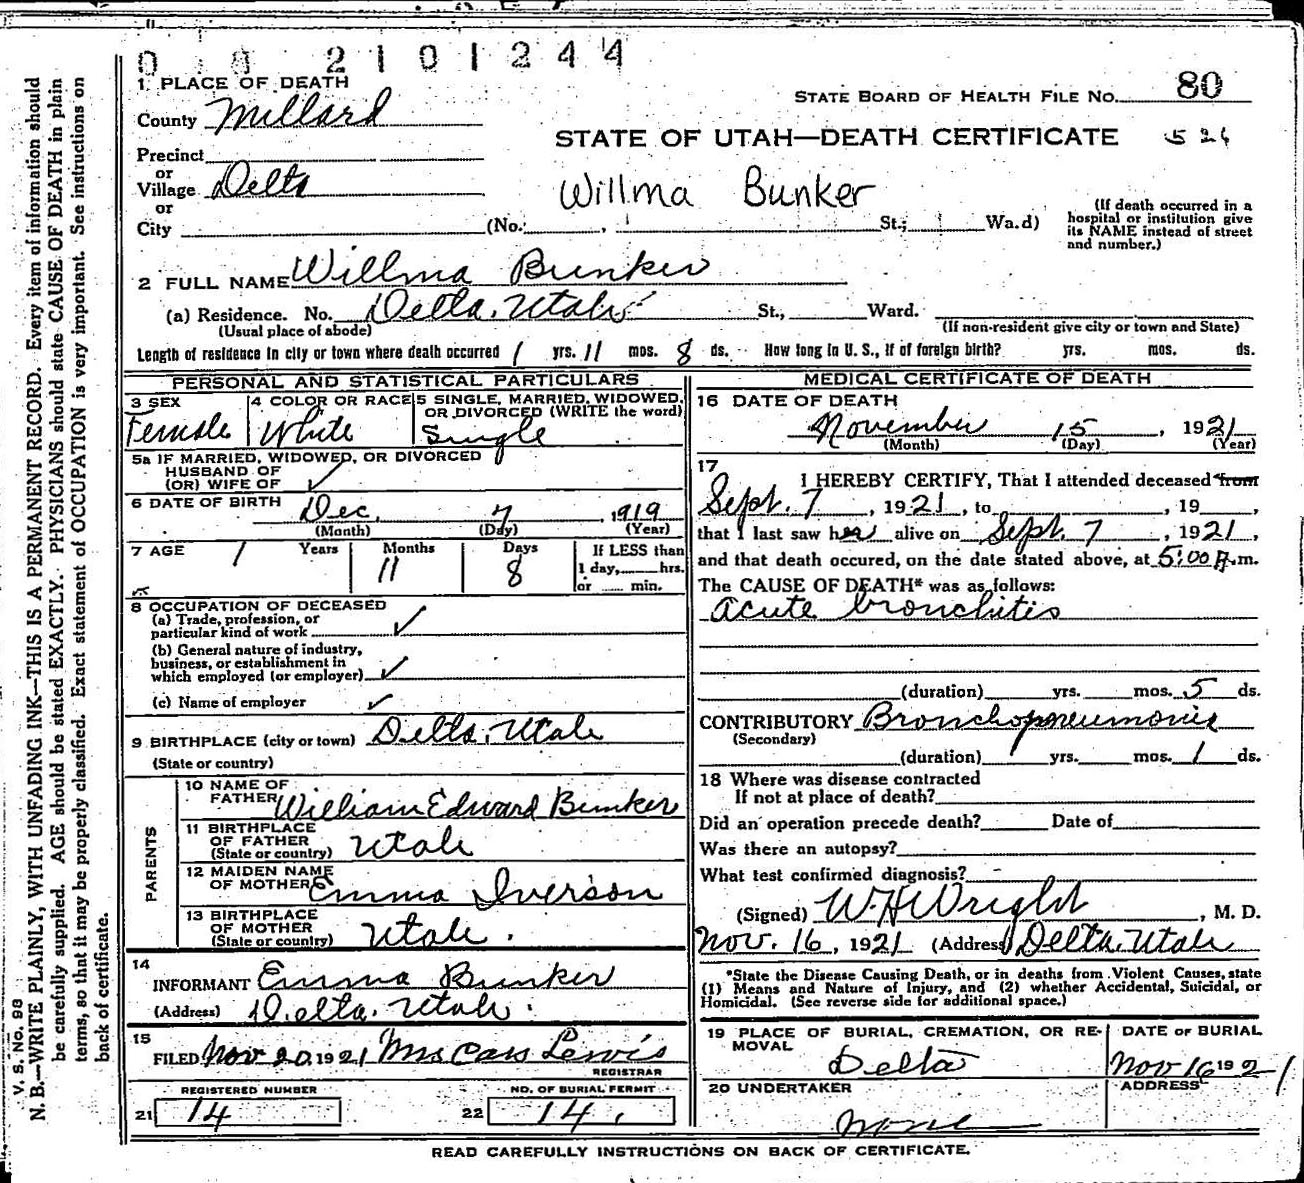 2101244
1 PLACE OF DEATH
County Millard
Precinct
or
Village Delta
or
City (No. , St.; Wa.d)
STATE BOARD OF HEALTH FILE NO. 80
STATE OF UTAH—DEATH CERTIFICATE 526
Willma Bunker
(If death occurred in a
hospital or institution give
its NAME instead of street
and number.)
2 FULL NAME Willma Bunker
(a) Residence. No. Delta, Utah St., Ward.
(Usual place of abode) (If non-resident give city or town and State)
Length of residence in city or town where death occurred 1 yrs. 11 mos. 8 ds. How long in U. S., if of foreign birth? yrs. mos. ds.
PERSONAL AND STATISTICAL PARTICULARS
3 SEX
Female
4 COLOR OR RACE
White
5 SINGLE, MARRIED, WIDOWED,
OR DIVORCED (WRITE the word)
Single
5a IF MARRIED, WIDOWED, OR DIVORCED
HUSBAND OF
(OR) WIFE OF ✓
6 DATE OF BIRTH Dec. 7, 1919
(Month) (Day) (Year)
7 AGE 1 Years 11 Months 8 Days
If LESS than
1 day, hrs.
or min.
8 OCCUPATION OF DECEASED
(a) Trade, profession, or
particular kind of work ✓
(b) General nature of industry,
business, or establishment in
which employed (or employer) ✓
(c) Name of employer ✓
9 BIRTHPLACE (city or town) Delta, Utah
(State or country)
PARENTS
10 NAME OF
FATHER William Edward Bunker
11 BIRTHPLACE
OF FATHER
(State or country) Utah
12 MAIDEN NAME
OF MOTHER Emma Iverson
13 BIRTHPLACE
OF MOTHER
(State or country) Utah.
14
INFORMANT Emma Bunker
(Address) Delta, Utah.
15
FILED Nov 20, 1921 Mrs Cass Lewis
REGISTRAR
REGISTERED NUMBER
21 14
NO. OF BURIAL PERMIT
22 14.
MEDICAL CERTIFICATE OF DEATH
16 DATE OF DEATH
November 15, 1921
(Month) (Day) (Year)
17
I HEREBY CERTIFY, That I attended deceased from
Sept. 7, 1921, to , 19 ,
that I last saw her alive on Sept. 7, 1921,
and that death occured, on the date stated above, at 5:00 A.m.
The CAUSE OF DEATH* was as follows:
acute bronchitis
(duration) yrs. mos. 5 ds.
CONTRIBUTORY Bronchopneumonia
(Secondary)
(duration) yrs. mos. 1 ds.
18 Where was disease contracted
If not at place of death?
Did an operation precede death? Date of
Was there an autopsy?
What test confirmed diagnosis?
(Signed) W. H. Wright, M. D.
Nov. 16, 1921 (Address) Delta, Utah
*State the Disease Causing Death, or in deaths from Violent Causes, state
(1) Means and Nature of Injury, and (2) whether Accidental, Suicidal, or
Homicidal. (See reverse side for additional space.)
19 PLACE OF BURIAL, CREMATION, OR RE-
MOVAL
Delta
DATE OF BURIAL
Nov 16 1921
20 UNDERTAKER
none
ADDRESS
READ CAREFULLY INSTRUCTIONS ON BACK OF CERTIFICATE.
V. S. No. 98
N. B.—WRITE PLAINLY, WITH UNFADING INK—THIS IS A PERMANENT RECORD. Every item of information should
be carefully supplied. AGE should be stated EXACTLY. PHYSICIANS should state CAUSE OF DEATH in plain
terms, so that it may be properly classified. Exact statement of OCCUPATION is very important. See instructions on
back of certificate.